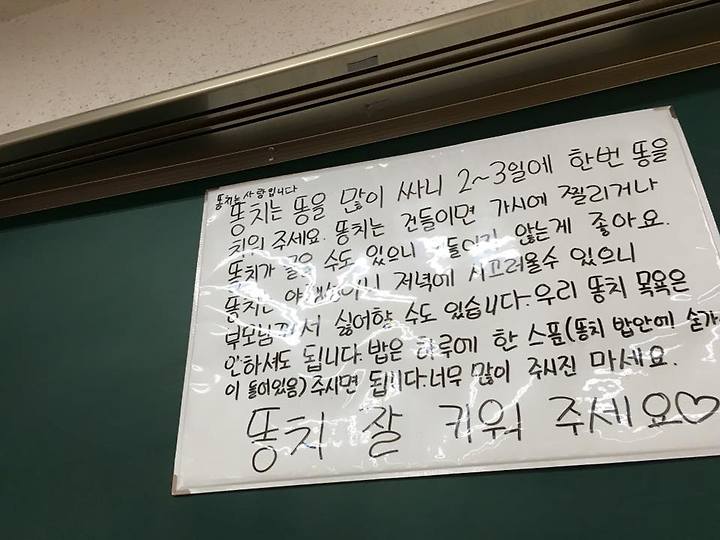 똥치는 사랑입니다
똥치는 똥을 많이 싸니 2~3일에 한번 똥을
치워 주세요. 똥치는 건들이면 가시에 찔리거나
똥치가 물 수도 있으니 건들이지 않는게 좋아요.
똥치는 야행성이니 저녁에 시끄러울수 있으니
부모님께서 싫어할 수도 있습니다. 우리 똥치 목욕은
안하셔도 됩니다. 밥은 하루에 한 스푼(똥치 밥안에 숟가
이 들어있음) 주시면 됩니다. 너무 많이 주시진 마세요.
똥치 잘 키워 주세요♡